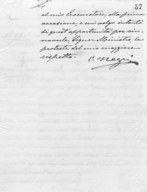 37
al mio Governo, alla prima
occasione, e mi valgo intanto
di quest'opportunità per rin-
novarle, Signor Ministro, le
proteste del mio maggiore
rispetto.